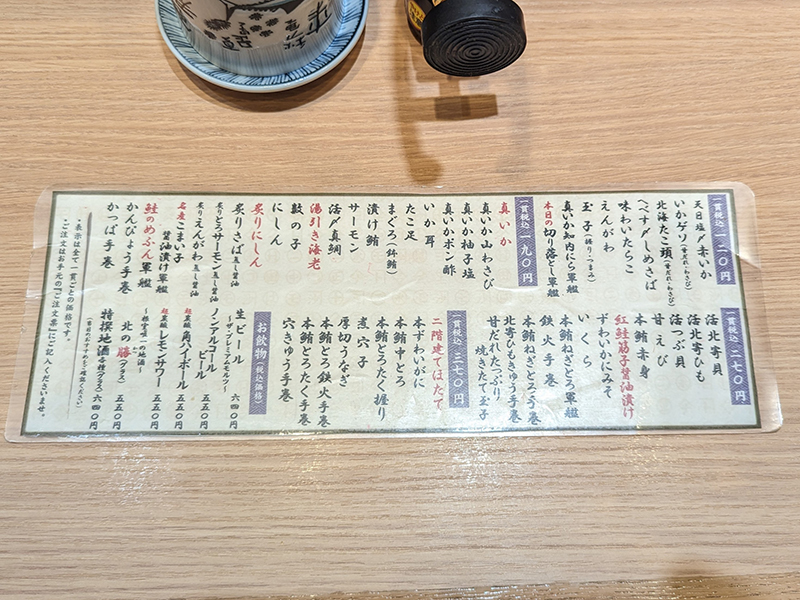 一貫税込 一二〇円
天日塩〆赤いか
いかゲソ
北海たこ頭
へべす〆しめさば
味わいたらこ
えんがわ
玉子(握り・つまみ)
真いか知内にら軍艦
本日の切り落とし軍艦
一貫税込 一九〇円
真いか
真いか山わさび
真いか柚子塩
真いかポン酢
いか耳
たこ足
まぐろ(鉢鮪)
漬け鮪
サーモン
活〆真鯛
湯引き海老
数の子
にしん
炙りにしん
炙りさば 蒸し醤油
炙りとろサーモン 蒸し醤油
炙りえんがわ 蒸し醤油
名産こまい子
醤油漬け軍艦
鮭のめふん軍艦
かんぴょう手巻
かっぱ手巻
一貫税込 二七〇円
活北寄貝
活北寄ひも
活つぶ貝
甘えび
本鮪赤身
紅鮭筋子醤油漬け
ずわいかにみそ
いくら
本鮪ねぎとろ軍艦
鉄火手巻
本鮪ねぎとろ手巻
北寄ひもきゅう手巻
甘だれたっぷり
焼きたて玉子
一貫税込 三七〇円
二階建てほたて
本ずわいがに
本鮪中とろ
本鮪とろたく握り
煮穴子
厚切うなぎ
本鮪とろ鉄火手巻
本鮪とろたく手巻
穴きゅう手巻
お飲物(税込価格)
生ビール
〜ザ・プレミアムモルツ〜 六四〇円
ノンアルコール
ビール 五五〇円
超炭酸 角ハイボール 五五〇円
超炭酸 レモンサワー 五五〇円
〜根室唯一の地酒〜
北の勝(グラス) 五五〇円
特撰地酒 各種(グラス) 六四〇円
・表示は全て一貫ごとの価格です。
・ご注文はお手元の『ご注文票』にご記入くださいませ。